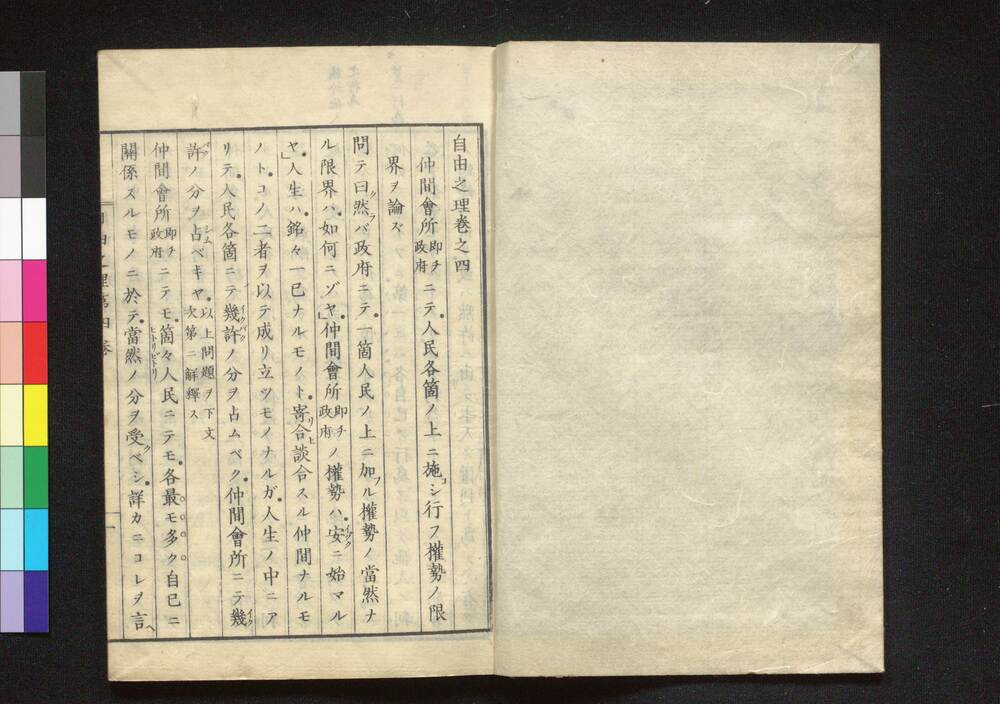 自由之理卷之四
仲間會所即チ政府ニテ人民各箇ノ上ニ施シ行フ權勢ノ限
界ヲ論ズ
問テ曰然ラバ政府ニテ一箇人民ノ上ニ加フル權勢ノ當然ナ
ル限界ハ如何ニゾヤ」仲間會所即チ政府ノ權勢ハ安クニ始マル
ヤ」人生ハ銘々一已ナルモノト寄リ合ヒ談合スル仲間ナルモ
ノトコノ二者ヲ以テ成リ立ツモノナルガ人生ノ中ニア
リテ人民各箇ニテ幾許イクバクノ分ヲ占ムベク仲間會所ニテ幾イク
許バクノ分ヲ占シムベキヤ以上問題ヲ下文次第ニ解釋ス
仲間會所即チ政府ニテモ箇々ヒトリビトリ人民ニテモ各最モ多ク自已ニ
關係スルモノニ於テ當然ノ分ヲ受クベシ詳カニコレヲ言ヘ